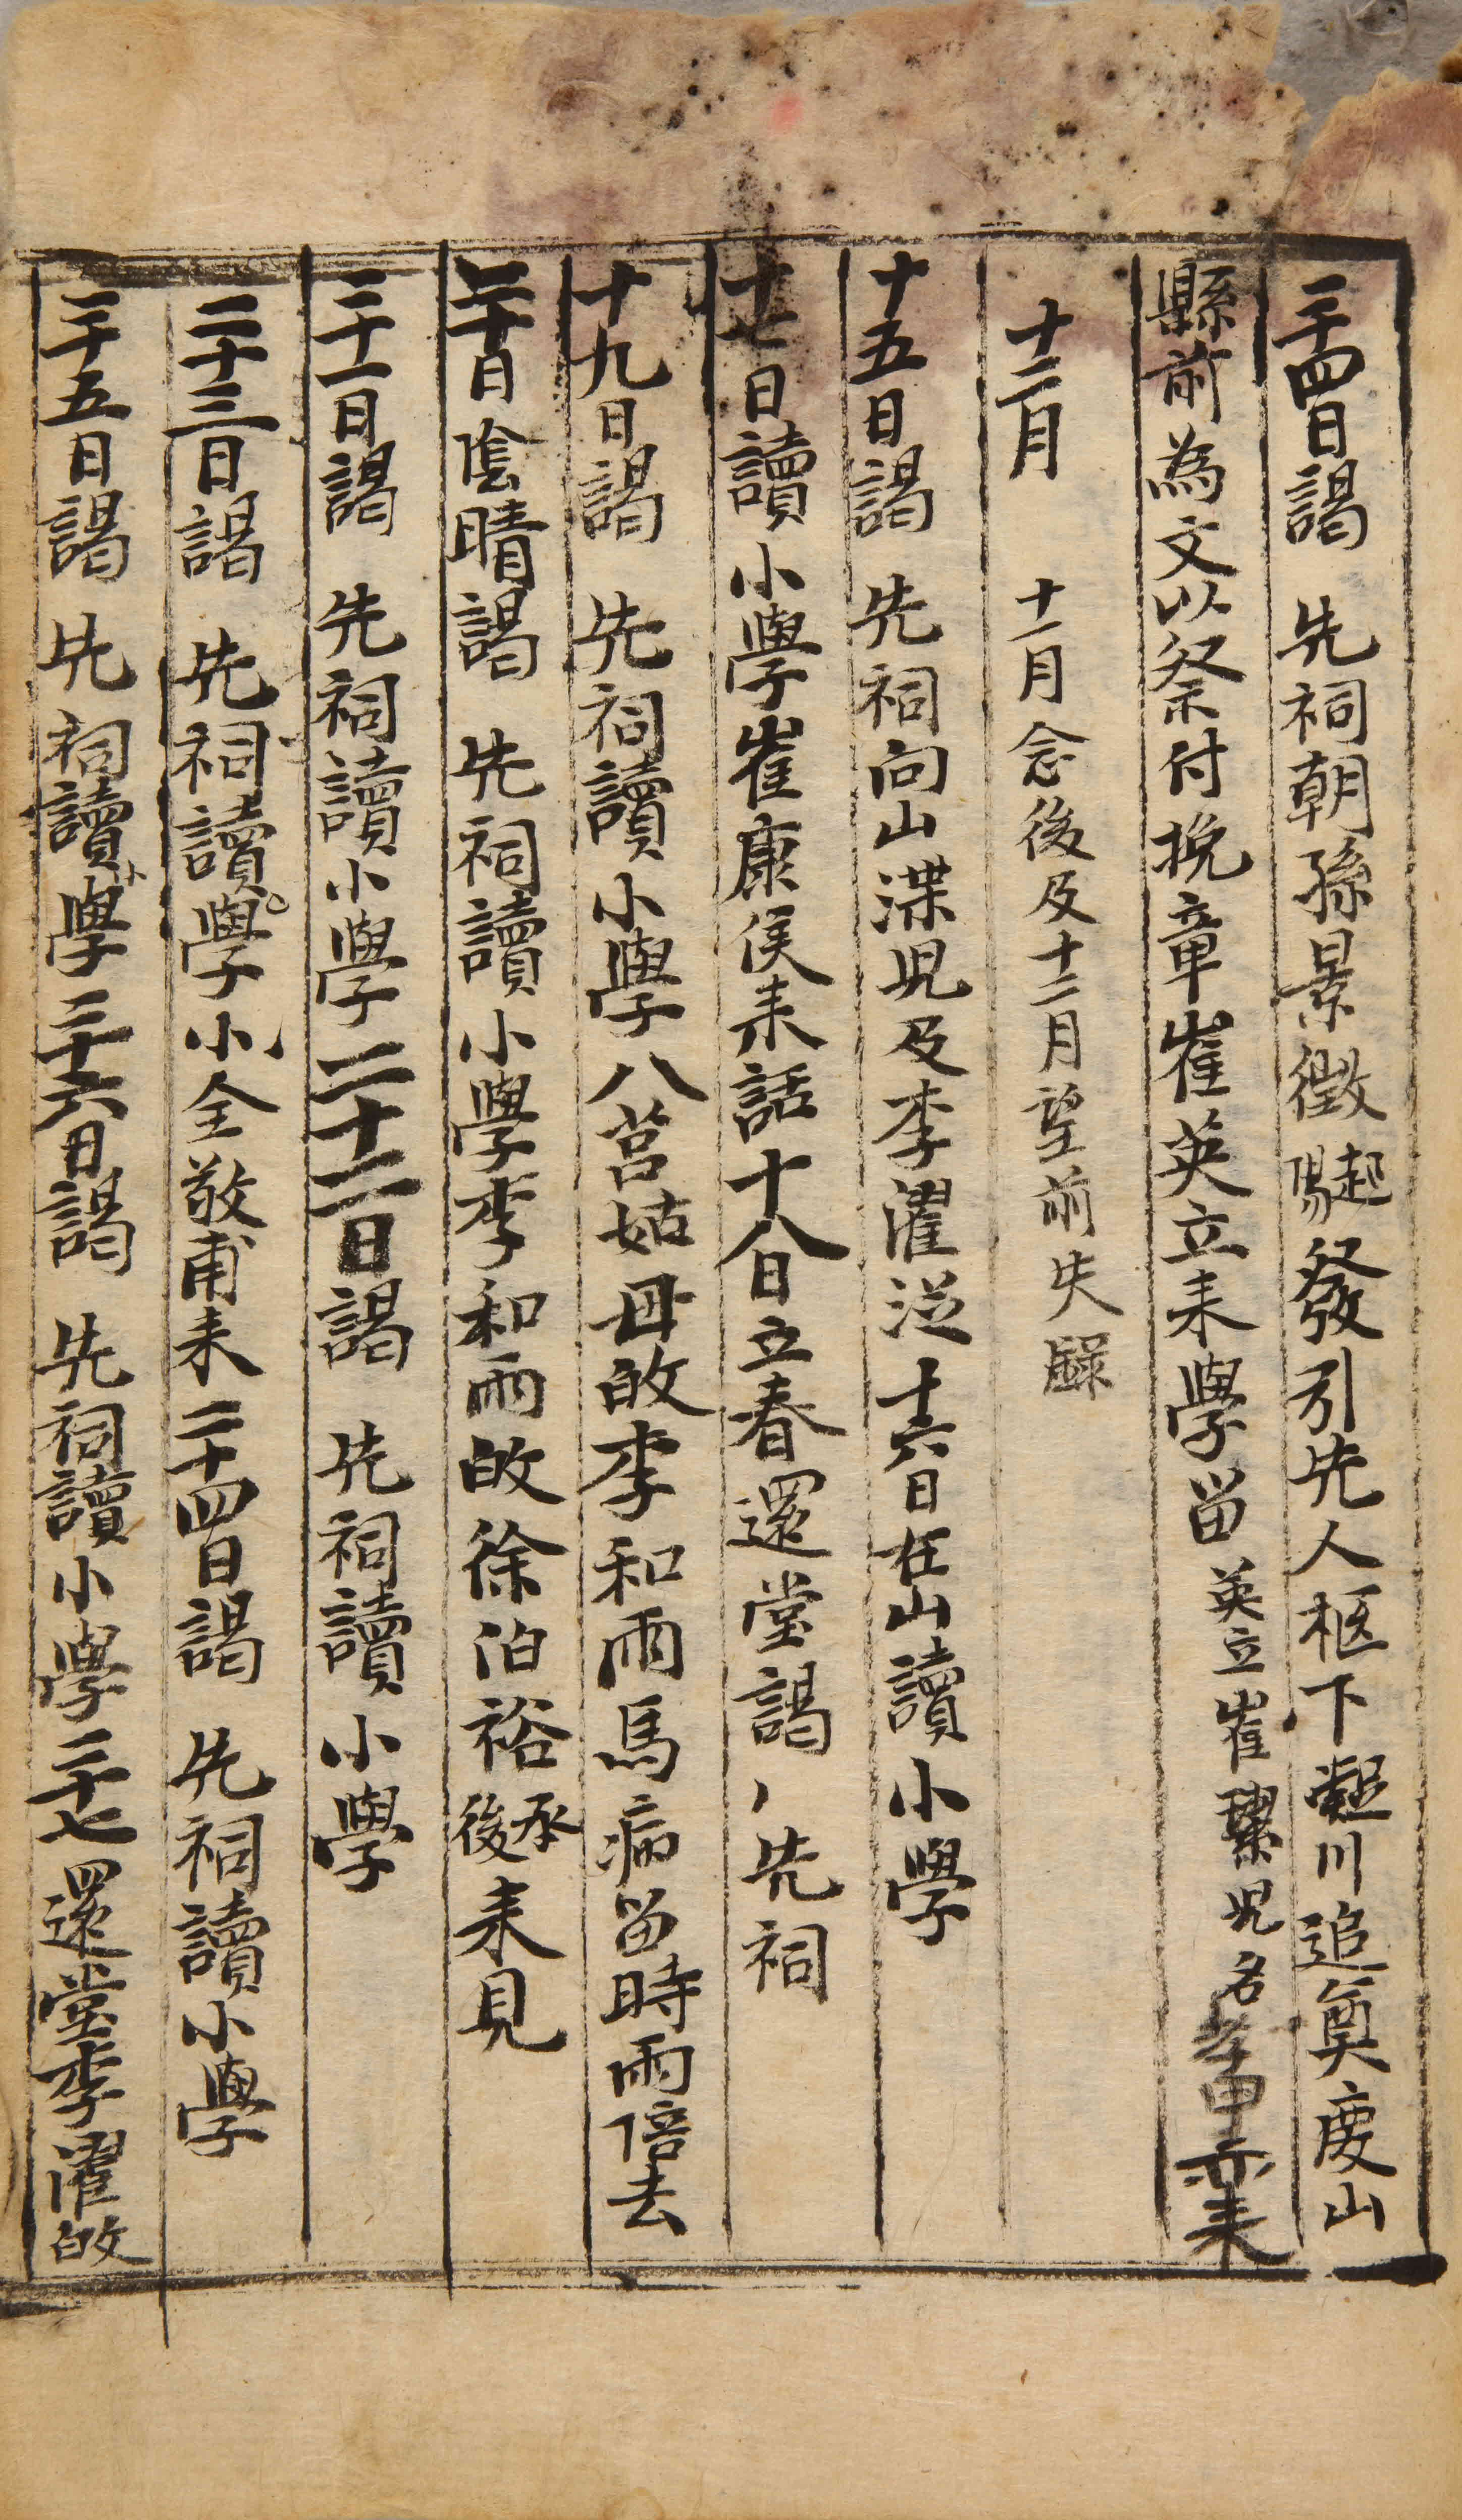 二十四日謁　先祠朝孫景徵起發引先人柩下川追奠度山
縣前為文以祭付挽章崔英立来學留英立崔兒名亦来
十二月　十一月念後及十二月望前失錄
十五日謁　先祠向山渫兒及李濯從十六日在山讀小學
十七日讀小學崔康侯来話十八日立春還堂謁先祠
十九日謁　先祠讀小學八莒姑母皈李和雨馬病留時雨倍去
二十日陰晴謁　先祠讀小學李和雨皈徐泊裕承後来見
二十一日謁　先祠讀小學二十二日謁　先祠讀小學
二十三日謁　先祠讀學小全敬甫来二十四日謁　先祠讀小學
二十五日謁　先祠讀小學二十六日謁　先祠讀小學二十七還堂李濯皈